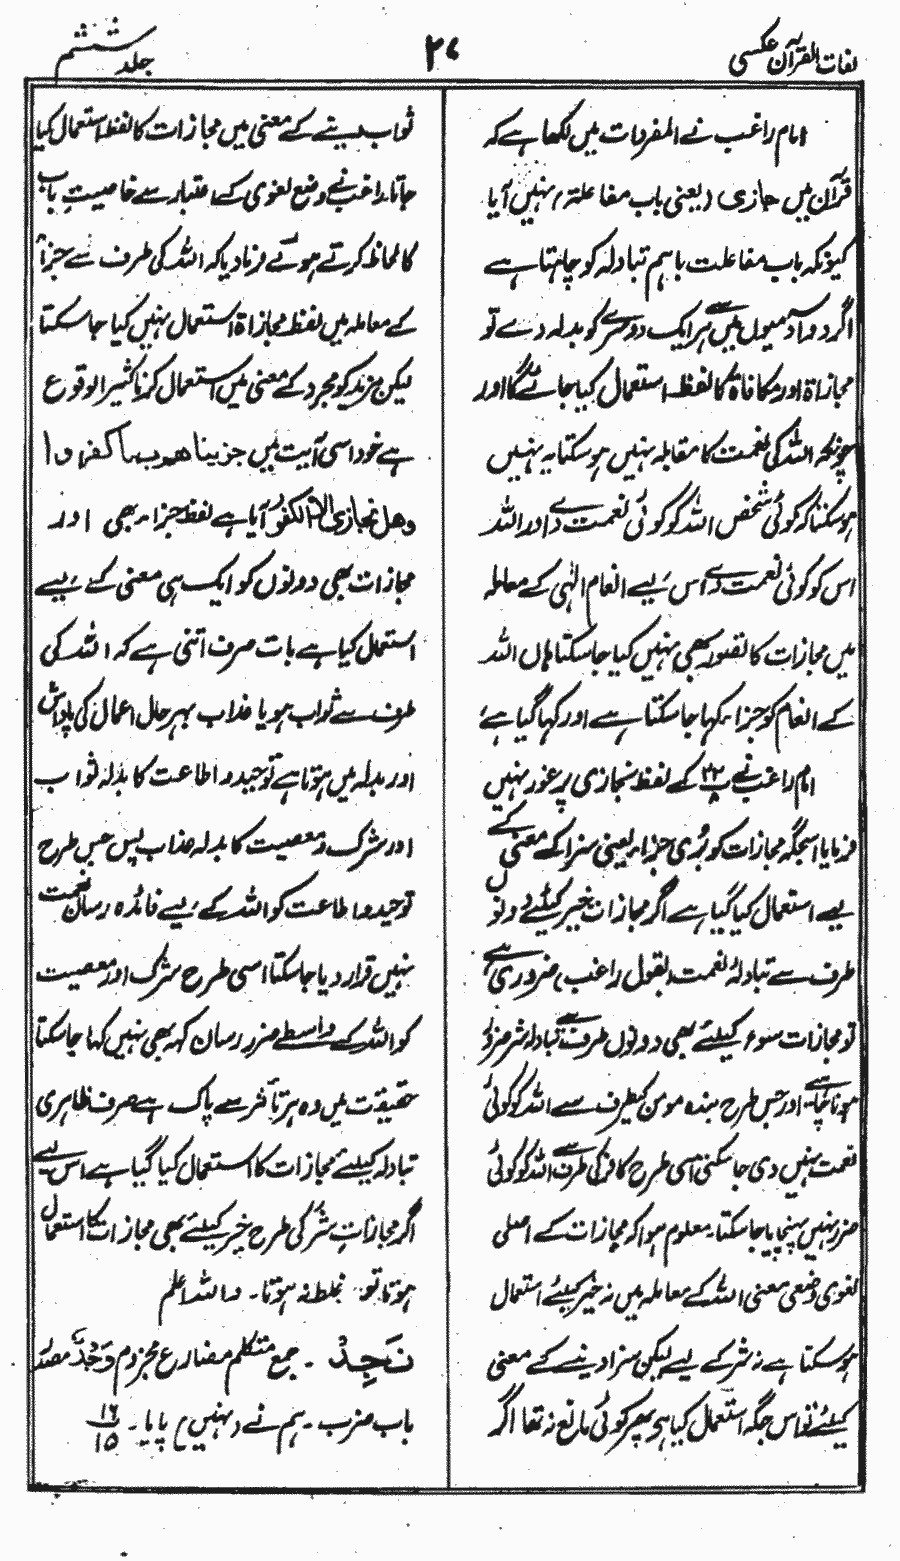 لغات القرآن عکسی
۲۷
جلد ششم
امام راغب نے المفردات میں لکھا ہے کہ
قرآن میں جازی (یعنی باب مفاعلتہ) نہیں آیا
کیونکہ باب مفاعلت باہم تبادلہ کو چاہتا ہے
اگر دو آدمیوں میں سے ہر ایک دوسرے کو بدلہ دے تو
مجازاۃ اور مکافاۃ کا لفظ استعمال کیا جائے گا اور
چونکہ اللہ کی نعمت کا مقابلہ نہیں ہو سکتا یہ نہیں
ہو سکتا کہ کوئی شخص اللہ کو کوئی نعمت دے اور اللہ
اس کو کوئی نعمت دے اس لیے انعام الٰہی کے معاملہ
میں مجازات کا تصور بھی نہیں کیا جا سکتا ہاں اللہ
کے انعام کو جزاء کہا جا سکتا ہے اور کہا گیا ہے،
امام راغب نے پ ۲۲ ۸ کے لفظ نجازی پر غور نہیں
فرمایا اسجگہ مجازات کو جُزِی جزاء یعنی سزا کے معنی کے
لیے استعمال کیا گیا ہے اگر مجازات خیر کیلئے دونوں
طرف سے تبادلۂ نعمت (بقول راغب) ضروری ہے
تو مجازات سوء کیلئے بھی دونوں طرف سے تبادلہ شر ضرور
ہونا چاہئے اور جس طرح بندہ مومن کیطرف سے اللہ کو کوئی
نعمت نہیں دی جا سکتی اسی طرح کافر کی طرف سے اللہ کو کوئی
ضرر نہیں پہنچایا جا سکتا۔ معلوم ہوا کہ مجازات کے اصلی
لغوی وضعی معنی اللہ کے معاملہ میں نہ خیر کیلئے استعمال
ہو سکتا ہے نہ شر کے لیے لیکن سزا دینے کے معنی
کیلئے تو اس جگہ استعمال کیا ہی پھر کوئی مانع نہ تھا اگر
ثواب دینے کے معنی میں مجازات کا لفظ استعمال کیا
جاتا۔ راغب نے وضع لغوی کے اعتبار سے خاصیتِ باب
کا لحاظ کرتے ہوئے فرما دیا کہ اللہ کی طرف سے جزاء
کے معاملہ میں لفظ مجازاۃ استعمال نہیں کیا جا سکتا
لیکن مزید کو مجرد کے معنی میں استعمال کرنا کثیر الوقوع
ہے خود اسی آیت میں جزینا ھم بما کفروا
وھل نجازی الا الکفور آیا ہے لفظ جزاء بھی اور
مجازات بھی دونوں کو ایک ہی معنی کے لیے
استعمال کیا ہے بات صرف اتنی ہے کہ اللہ کی
طرف سے ثواب ہو یا عذاب بہرحال اعمال کی پاداش
اور بدلہ میں ہوتا ہے توحید و اطاعت کا بدلہ ثواب
اور شرک و معصیت کا بدلہ عذاب پس جس طرح
توحید و اطاعت کو اللہ کے لیے فائدہ رساں نعمت
نہیں قرار دیا جا سکتا اسی طرح شرک اور معصیت
کو اللہ کے واسطے ضرر رساں کہہ بھی نہیں کہا جا سکتا
حقیقت میں وہ ہر تأثر سے پاک ہے صرف ظاہری
تبادلہ کیلئے مجازات کا استعمال کیا گیا ہے اس لیے
اگر مجازاتِ شر کی طرح خیر کیلئے بھی مجازات کا استعمال
ہوتا تو غلط نہ ہوتا۔ واللہ اعلم
نَجِدْ ۔ جمع متکلم مضارع مجزوم وَجَدَ مصدر
باب ضرب۔ ہم نے (نہیں) پایا۔ ۱۶ ۱۵